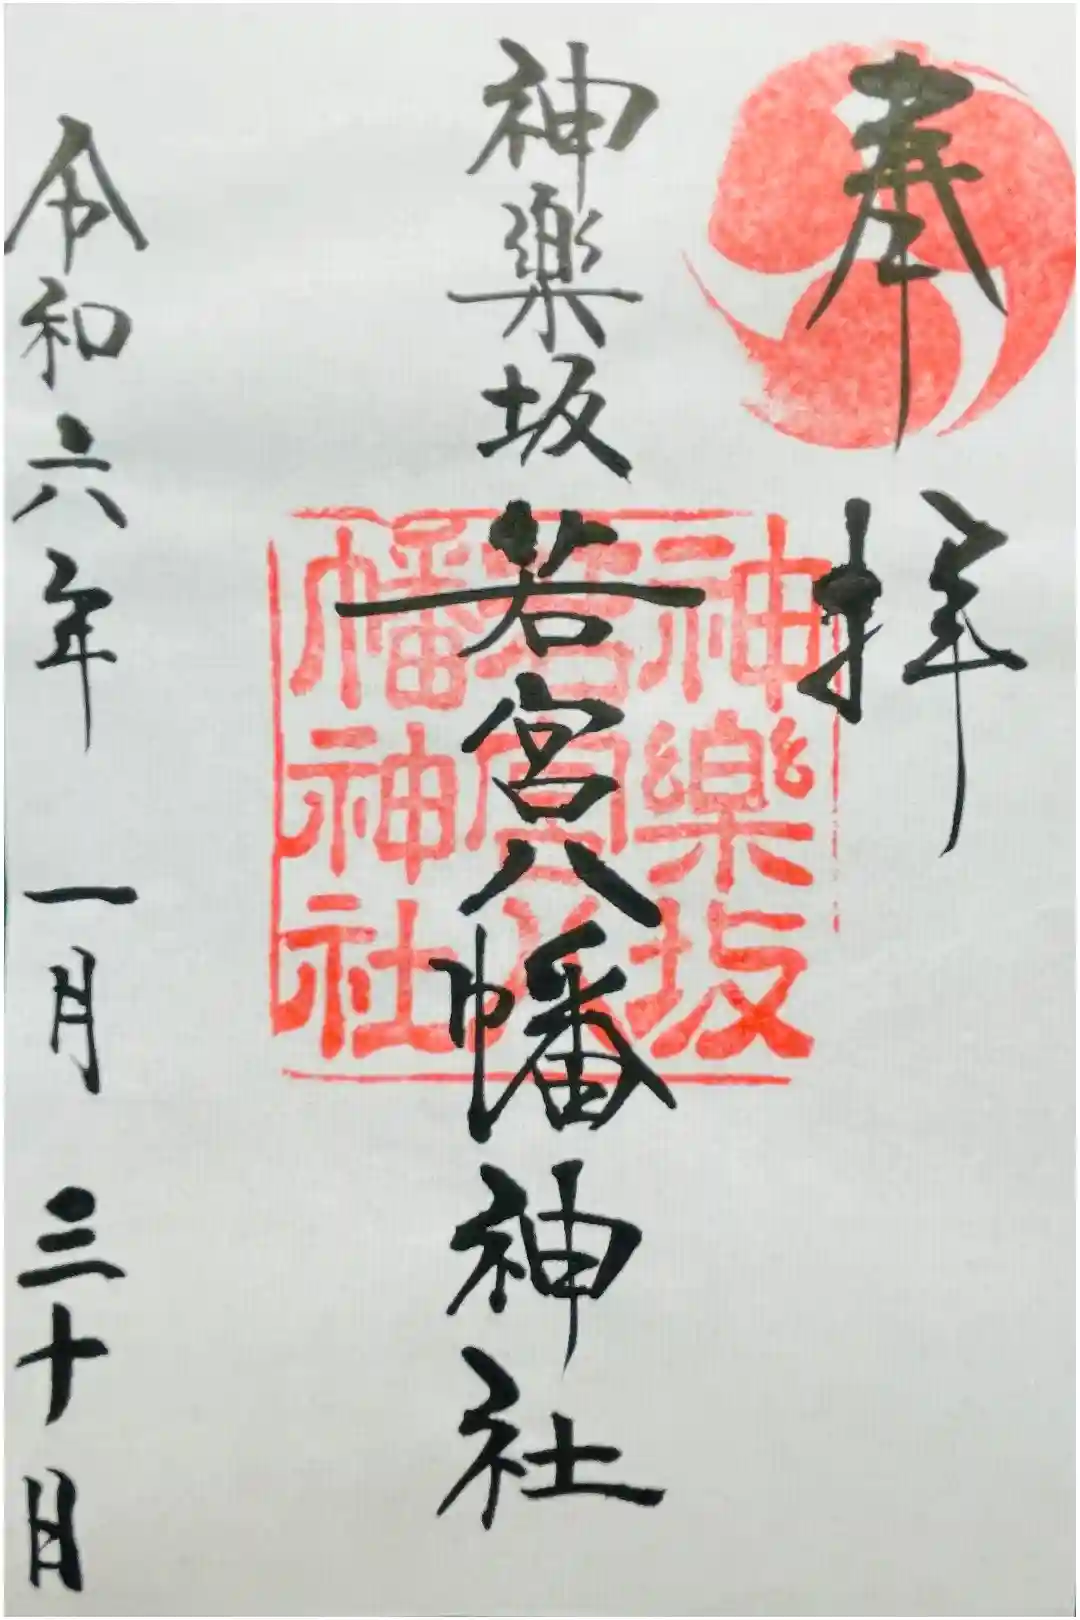 奉拝
神楽坂若宮八幡神社
神樂坂
若宮八
幡神社
令和六年一月三十日